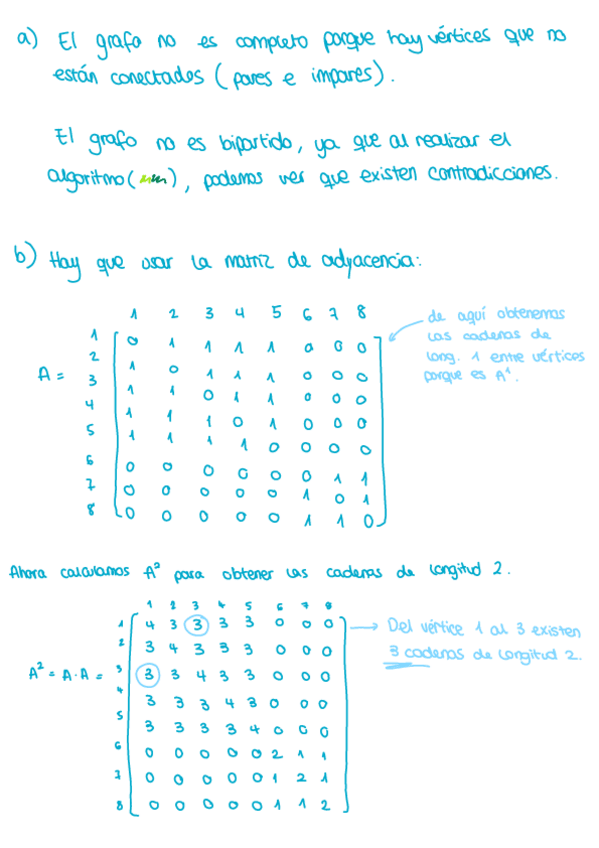 a) El grafo no es completo porque hay vértices que no
están conectados (pares e impares).
El grafo no es bipartido, ya que al realizar el
algoritmo (), podemos ver que existen contradicciones.
b) Hay que usar la matriz de adyacencia:
1 2 3 4 5 6 7 8
A =
1 0 1 1 1 1 0 0 0
2 1 0 1 1 1 0 0 0
3 1 1 0 1 1 0 0 0
4 1 1 1 0 1 0 0 0
5 1 1 1 1 0 0 0 0
6 0 0 0 0 0 0 1 1
7 0 0 0 0 0 1 0 1
8 0 0 0 0 0 1 1 0
de aquí obtenemos
las cadenas de
long. 1 entre vértices
porque es A¹.
Ahora calculamos A² para obtener las cadenas de longitud 2.
1 2 3 4 5 6 7 8
A² = A · A =
1 4 3 3 3 3 0 0 0
2 3 4 3 3 3 0 0 0
3 3 3 4 3 3 0 0 0
4 3 3 3 4 3 0 0 0
5 3 3 3 3 4 0 0 0
6 0 0 0 0 0 2 1 1
7 0 0 0 0 0 1 2 1
8 0 0 0 0 0 1 1 2
Del vértice 1 al 3 existen
3 cadenas de longitud 2.